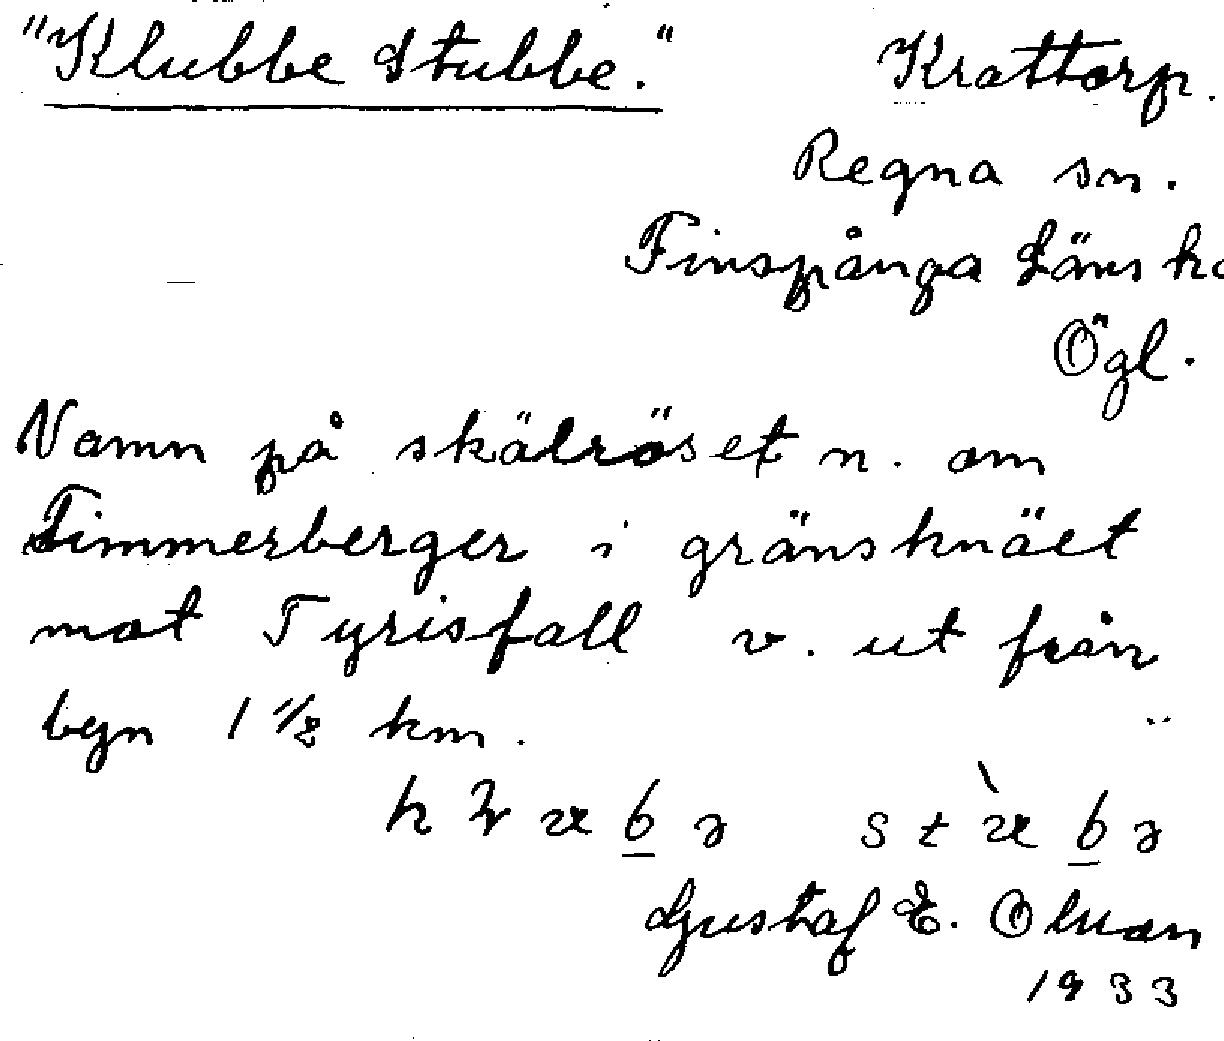 "Klubbe Stubbe." Krattorp.
Regna sn.
Finspånga Läns
Ögl.
Namn på skälröset n. om
Timmerberger i gränsknäet
mot Tyrisfall v. ut från
byn 1 1/2 km.
Gustaf E.
1933